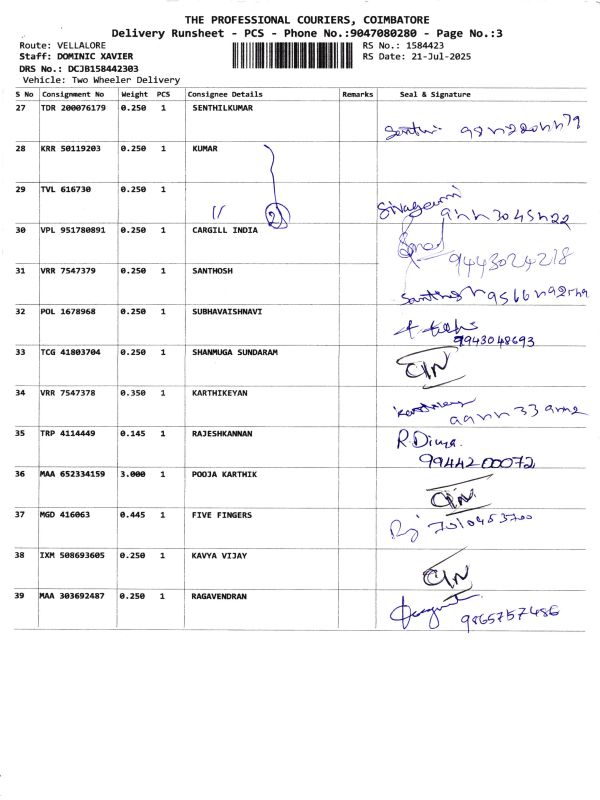 THE PROFESSIONAL COURIERS, COIMBATORE
Delivery Runsheet - PCS - Phone No.:9047080280 - Page No.:3
Route: VELLALORE RS No.: 1584423
Staff: DOMINIC XAVIER RS Date: 21-Jul-2025
DRS No.: DCJB158442303
Vehicle: Two Wheeler Delivery
S No Consignment No Weight PCS Consignee Details Remarks Seal & Signature
27 TDR 200076179 0.250 1 SENTHILKUMAR
28 KRR 50119203 0.250 1 KUMAR
29 TVL 616730 0.250 1
30 VPL 951780891 0.250 1 CARGILL INDIA
9443024218
31 VRR 7547379 0.250 1 SANTHOSH
32 POL 1678968 0.250 1 SUBHAVAISHNAVI
9943048693
33 TCG 41803704 0.250 1 SHANMUGA SUNDARAM
34 VRR 7547378 0.350 1 KARTHIKEYAN
35 TRP 4114449 0.145 1 RAJESHKANNAN R.Divya
9944200072
36 MAA 652334159 3.000 1 POOJA KARTHIK
37 MGD 416063 0.445 1 FIVE FINGERS
38 IXM 508693605 0.250 1 KAVYA VIJAY
39 MAA 303692487 0.250 1 RAGAVENDRAN
9865757486